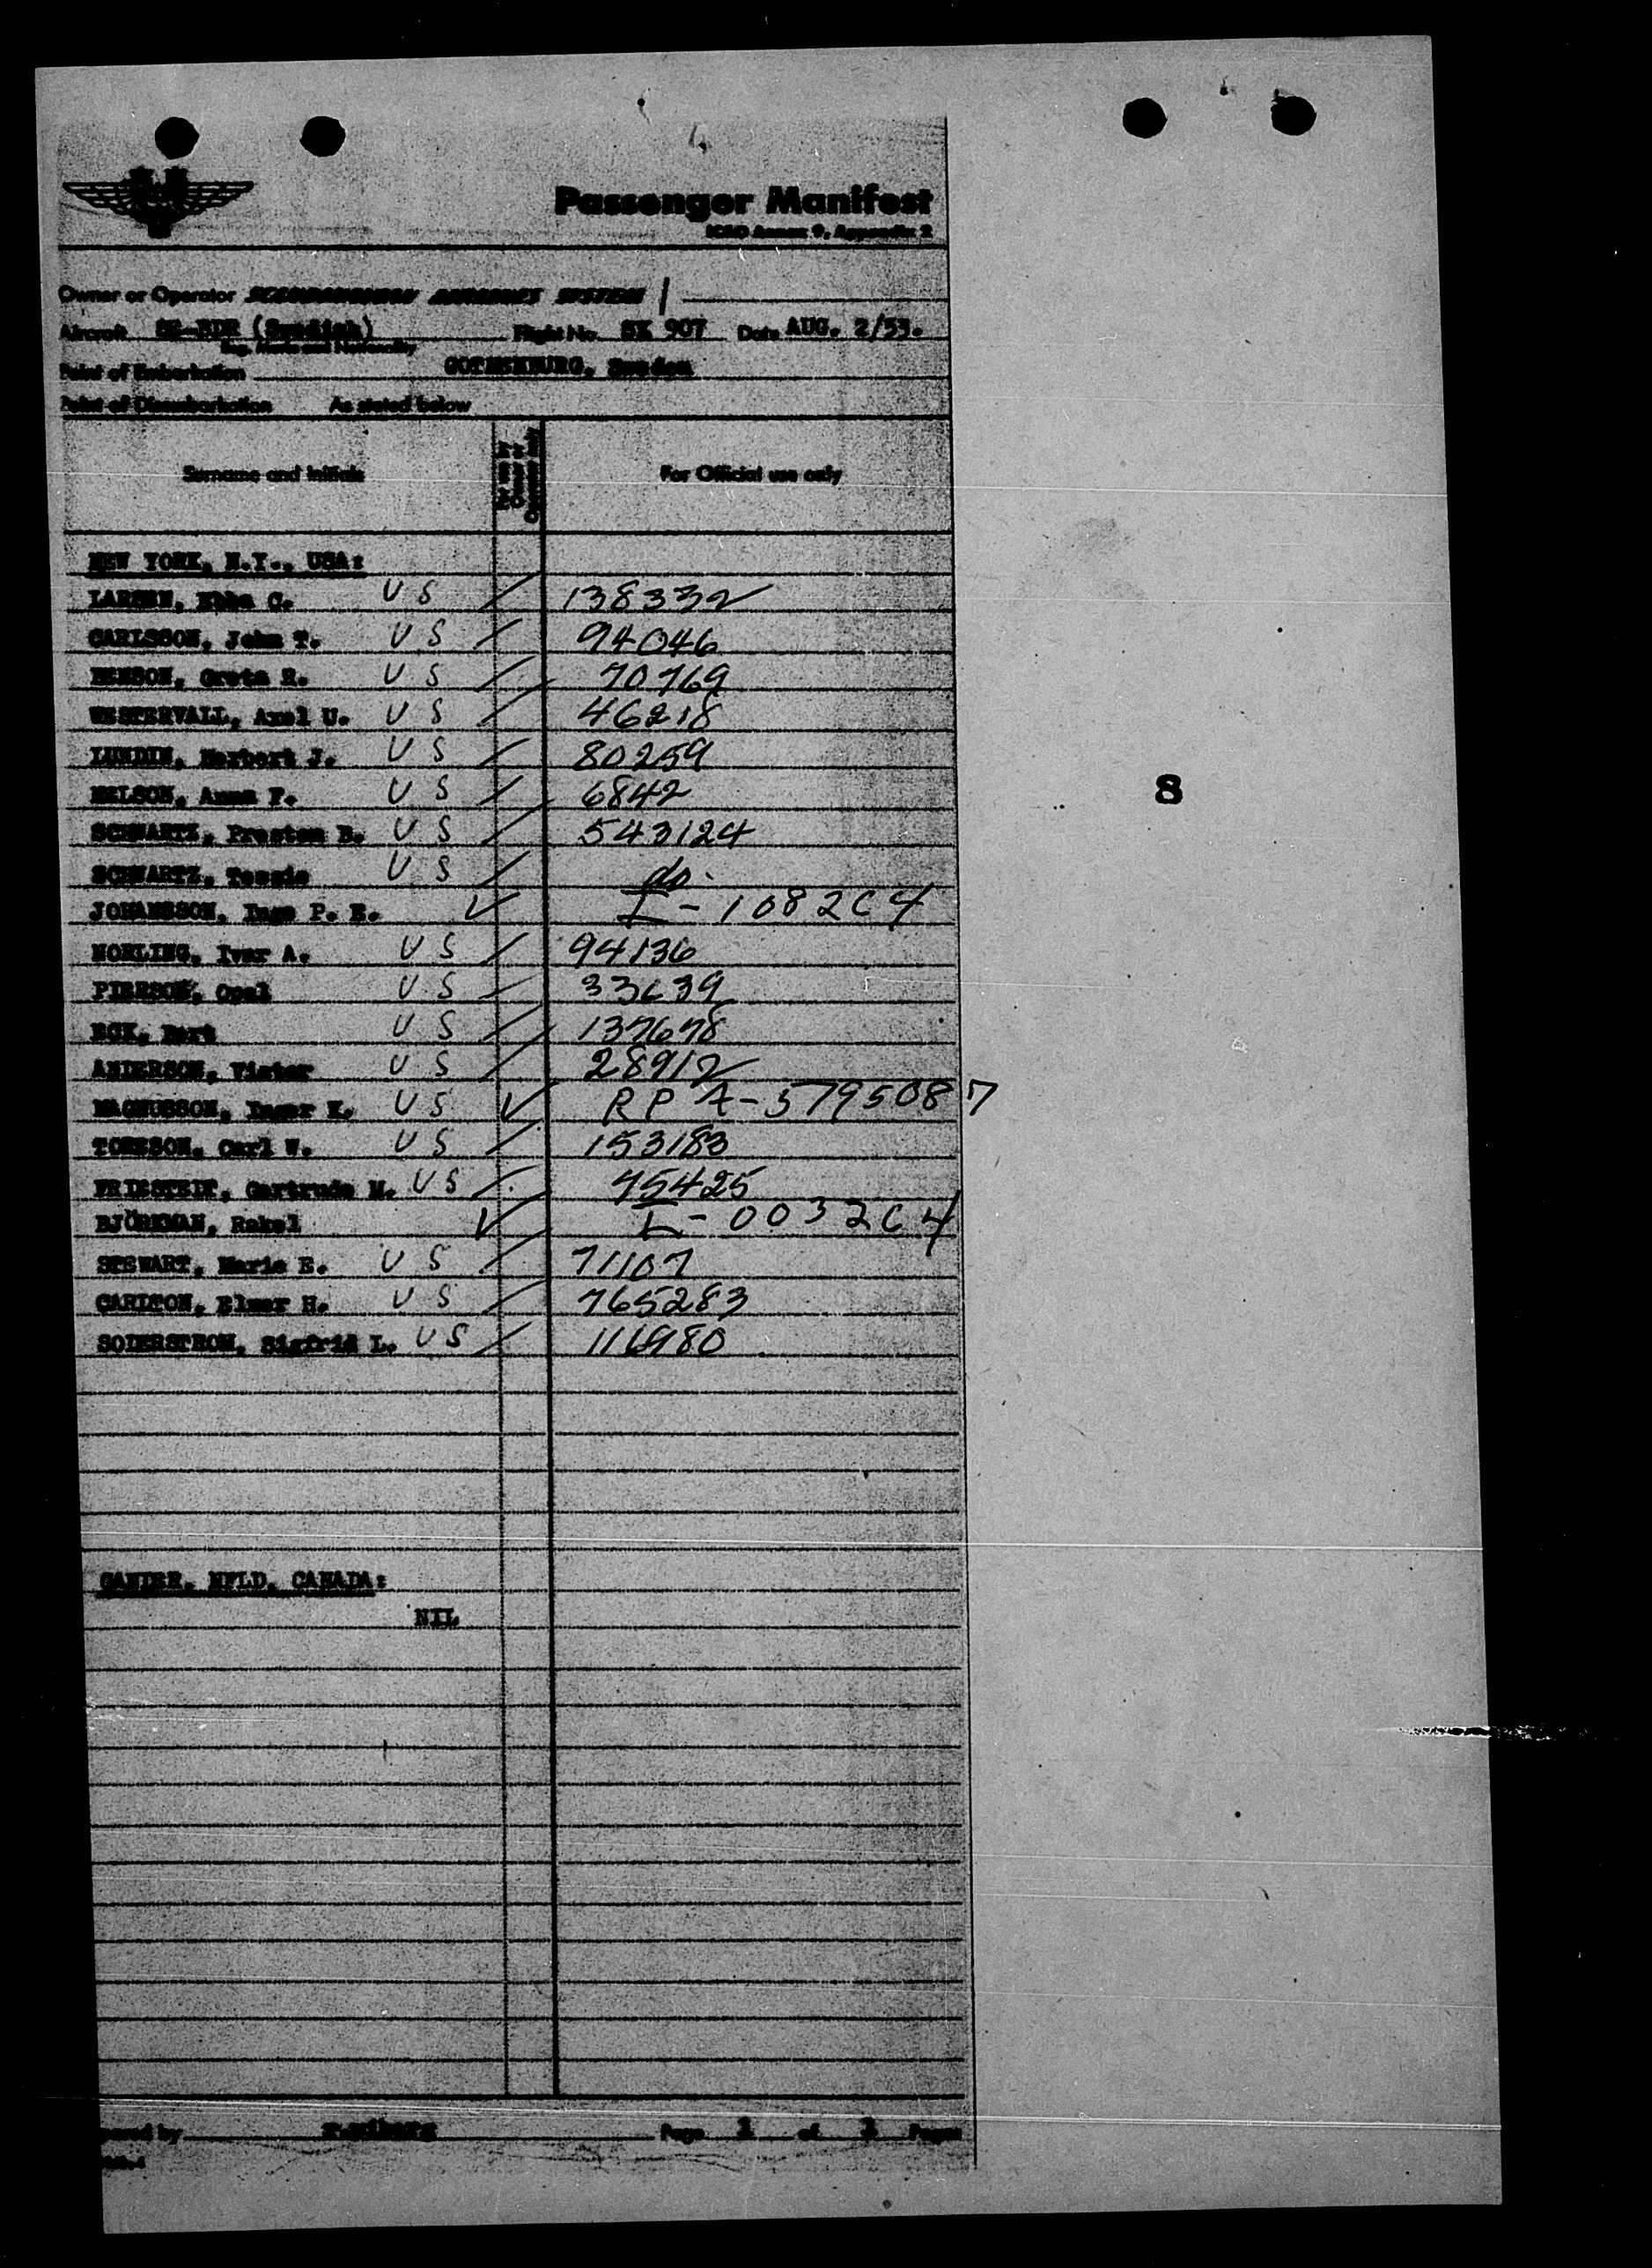 Passenger Manifest
ICAO Annex 9, Appendix 2
Owner or Operator SCANDINAVIAN AIRLINES SYSTEM
Aircraft (Swedish) Flight No. SK 907 Date AUG. 2/53.
Reg. Marks and Nationality
Point of Embarkation GOTHENBURG, Sweden
Point of Disembarkation As stated below
Surname and Initials For Official use only
NEW YORK, N.Y., USA:
LARSEN, Ebba C. US 138332
CARLSSON, John T. US 94046
BENSON, Greta R. US 70769
WESTERVALL, Axel U. US 46218
LUNDIN, Herbert J. US 80259
NELSON, Anna F. US 6842
SCHWARTZ, Preston B. US 543124
SCHWARTZ, Tessie US do.
JOHANSSON, Inga P. E. I-108264
NORLING, Ivar A. US 94136
PIERSON, Opal US 33639
ECK, US 137678
ANDERSON, Victor US 28912
MAGNUSSON, Inger K. US RP A-5795087
TORNSON, Carl W. US 153183
Gertrude M. US 75425
BJÖRKMAN, Rakel I-003264
STEWART, Marie E. US 71107
CARLTON, Elmer H. US 765283
SODERSTROM, Sigfrid L. US 116980
GANDER, NFLD, CANADA:
NIL
8
Page of Pages